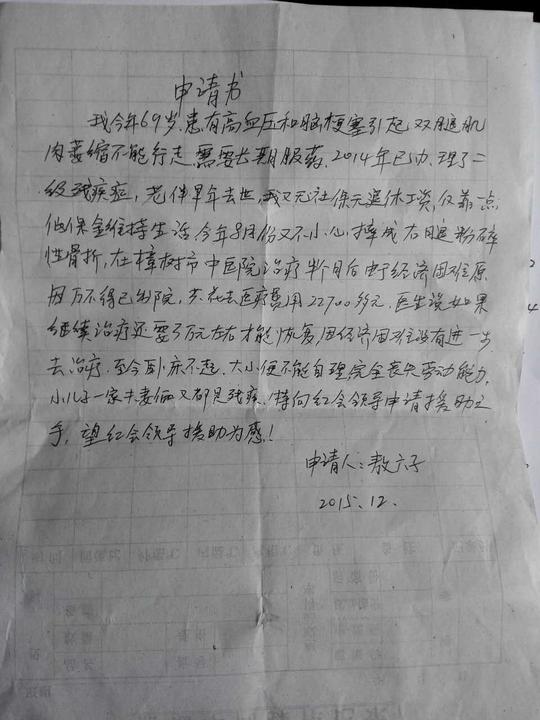 申请书
我今年69岁,患有高血压和脑梗塞引起双腿肌
肉萎缩不能行走,需要长期服药,2014年已办理了二
级残疾症,老伴早年去世,我又无社保无退休工资,仅靠一点
低保金维持生活,今年8月份又不小心摔成右腿粉碎
性骨折,在樟树市中医院治疗半个月后由于经济困难原
因万不得已出院,共花去医疗费用22700多元,医生说如果
继续治疗还要3万元左右才能恢复,因经济困难没有进一步
去治疗,至今卧床不起,大小便不能自理完全丧失劳动能力,
小儿子一家夫妻俩又都是残疾,特向红会领导申请援助之
手,望红会领导援助为感!
申请人:敖六子
2015.12.